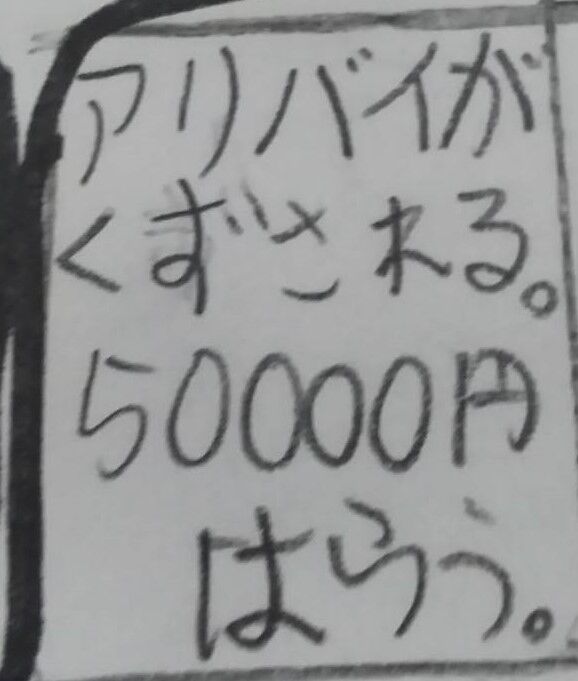 アリバイが
くずされる。
50000円
はらう。